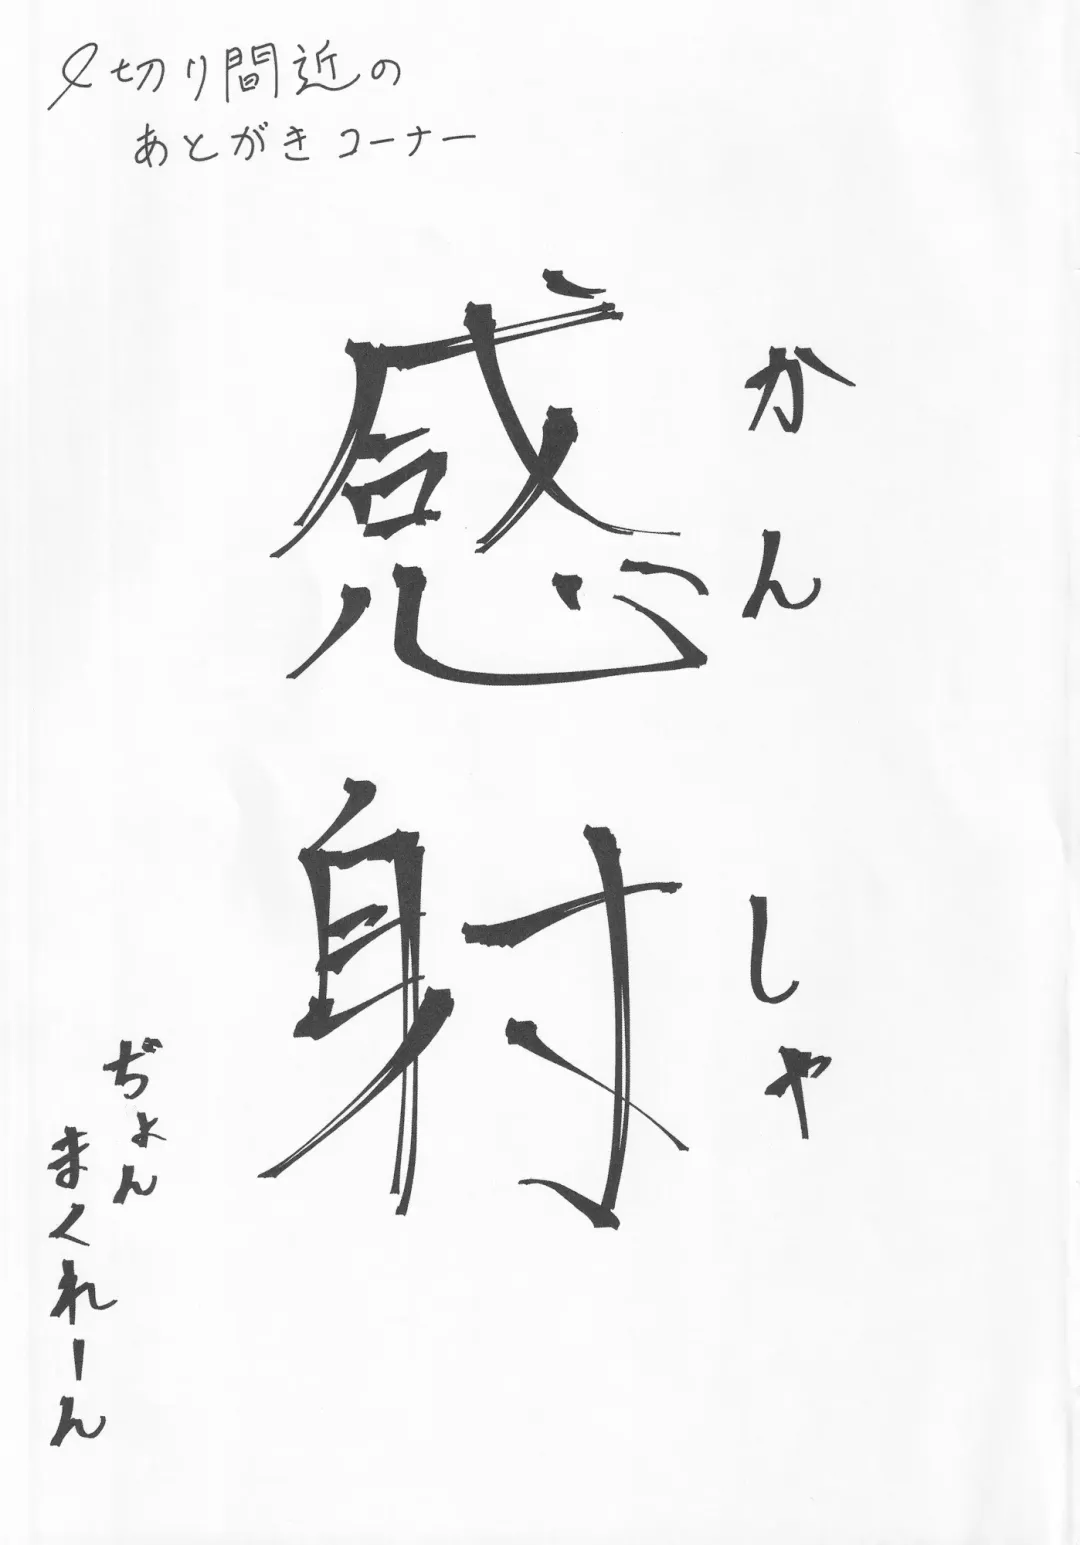 〆切り間近の
あとがきコーナー
かんしゃ
感射
ぢょん
まくれーん